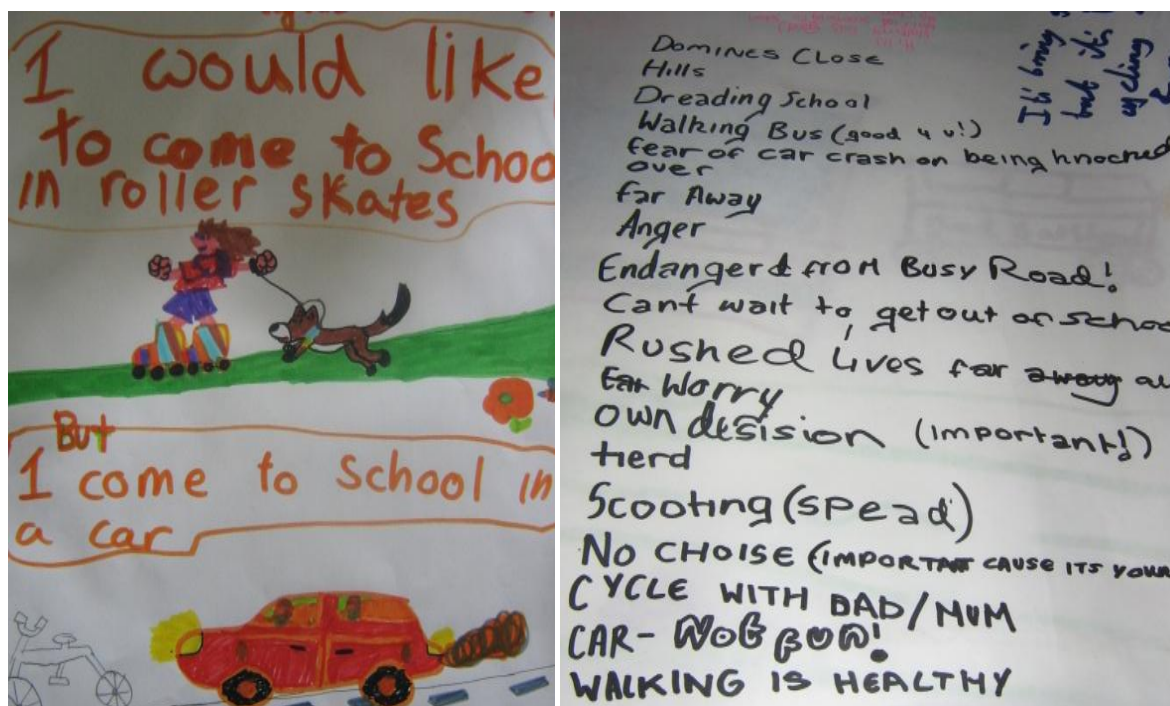 I would like
to come to Schoo
in roller skates
But
I come to School in
a car
Domines Close
Hills
Dreading School
Walking Bus (good 4 u!)
fear of car crash on being knocked
over
far Away
Anger
Endangerd from Busy Road!
Cant wait to get out of schoo
Rushed lives far away au
Ear Worry
own desision (important!)
tierd
Scooting (spead)
NO CHOISE (IMPORTANT CAUSE ITS YOUR
CYCLE WITH DAD/MUM
CAR- NOT FUN!
WALKING IS HEALTHY
It's
but it's
cycling